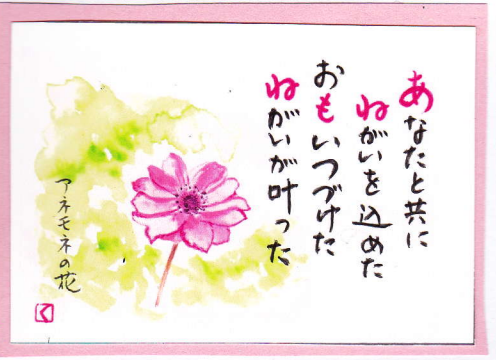 あなたと共に
ねがいを込めた
おもいつづけた
ねがいが叶った
アネモネの花
く